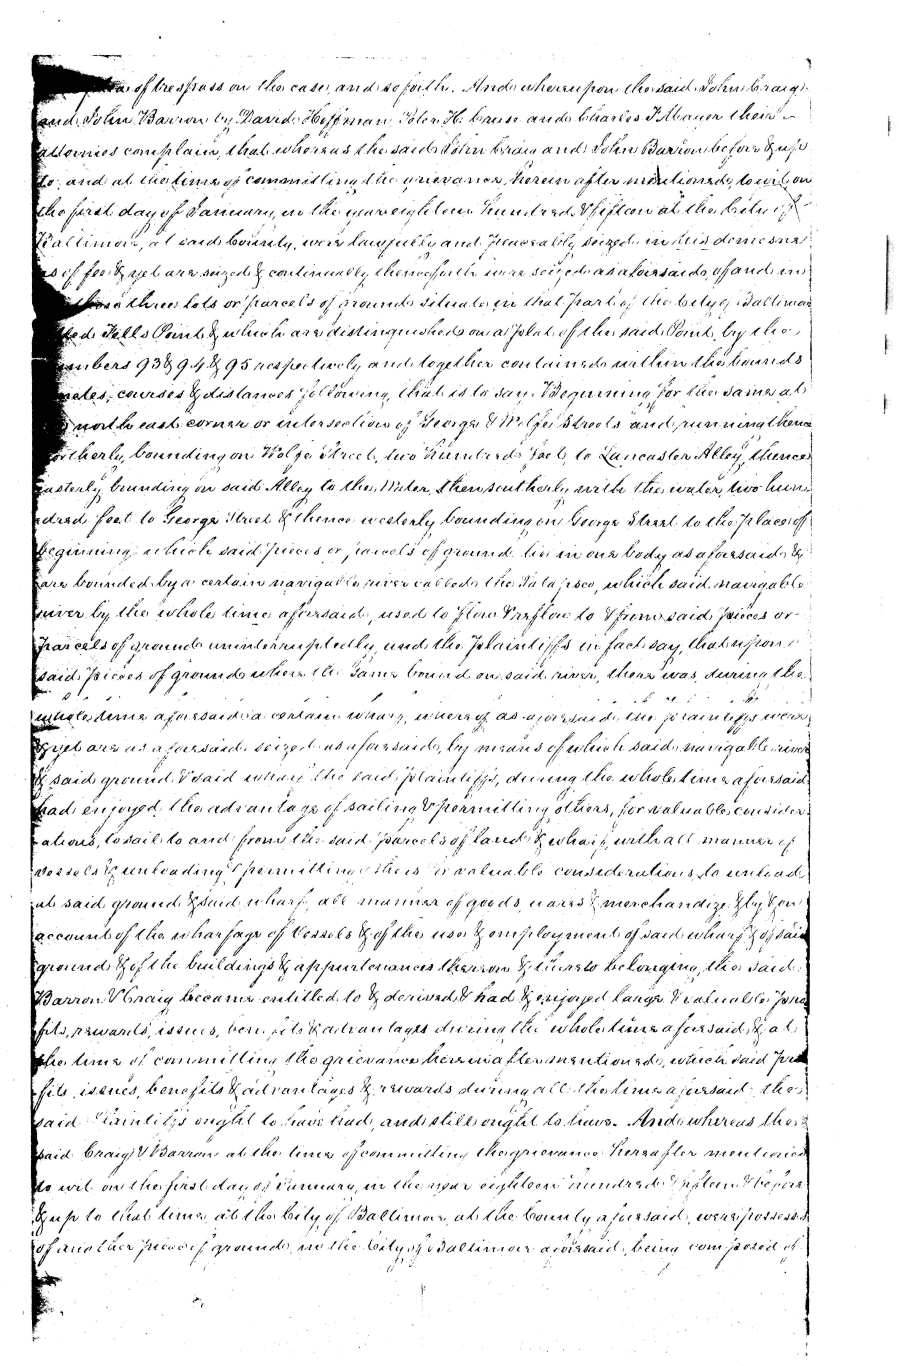 of trespass on the case, and so forth. And whereupon the said John Craig
and John Barron by David Hoffman, Peter H. Cruse and Charles F Mayer their
attornies complain, that whereas the said John Craig and John Barron before & up
to, and at the time of committing the grievance, herein after mentioned, to wit on
the first day of January, in the year eighteen hundred & fifteen at the City of
Baltimore, at said County, were lawfully and peaceably seized in his demesne
as of fee & yet are seized & continually thenceforth were seized as aforesaid, of and in
those three lots or parcels of ground situate in that part of the City of Baltimore
Fells Point & which are distinguished on a plat of the said Point, by the
numbers 93 & 94 & 95 respectively and together contained within the bounds
metes, courses & distances following, that is to say. Beginning for the same at
north east corner or intersection of George & Wolfe Streets and running thence
northerly, bounding on Wolfe Street, two hundred feet, to Lancaster Alley, thence
easterly bounding on said Alley to the Water, then southerly with the water, two hun
dred feet to George Street & thence westerly bounding on George Street to the place of
beginning; which said pieces or parcels of ground lie in one body as aforesaid &
are bounded by a certain navigable river called the Patapsco, which said navigable
river by the whole time aforesaid, used to flow & reflow to & from said pieces or
parcels of ground uninterruptedly, and the plaintiffs in fact say, that upon
said pieces of ground where the same bound on said river, there was, during the
whole time aforesaid a certain wharf, whereof as aforesaid the plaintiffs were
& yet are as aforesaid seized as aforesaid, by means of which said navigable river
& said ground & said wharf the said plaintiffs, during the whole time aforesaid
had enjoyed the advantage of sailing & permitting others, for valuable consider
-ations, to sail to and from the said parcels of land & wharf, with all manner of
vessels & unloading & permitting others for valuable considerations, to unload
at said ground & said wharf, all manner of goods, wares & merchandize, & by & on
account of the wharfage of Vessels & of the use & employment of said wharf & of said
ground & of the buildings & appurtenances thereon & thereto belonging, the said
Barron & Craig became entitled to & derived & had & enjoyed large & valuable pro
fits, rewards, issues, benefits & advantages during the whole time aforesaid, & at
the time of committing the grievance herein after mentioned, which said pro
-fits, issues, benefits & advantages & rewards during all the time aforesaid the
said Plaintiffs ought to have had, and still ought to have. And whereas the
said Craig & Barron at the time of committing the grievance hereafter mentioned
to wit on the first day of January, in the year eighteen hundred & fifteen & before
& up to that time, at the City of Baltimore, at the County aforesaid, were possessed
of another piece of ground, in the City of Baltimore aforesaid, being composed of